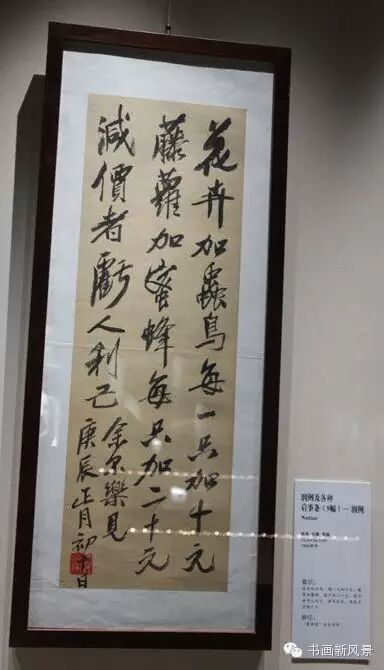 花卉加蟲鳥每一只加十元
藤蘿加蜜蜂每只加二十元
減價者虧人利己
余不樂見
庚辰正月初十日
润例及各种
启事条 — 润例
Notice
款识：
钤印：
书画新风景